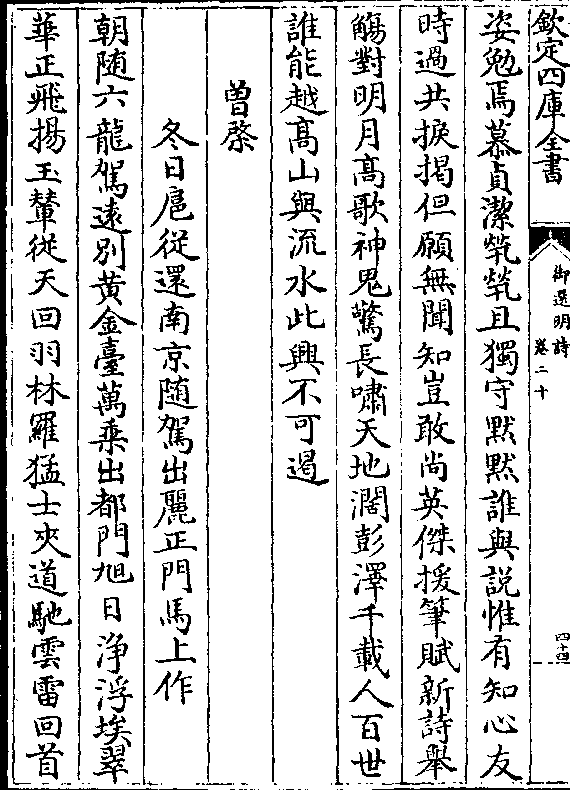 欽定四庫全書
御選明詩
卷二十
四十四
姿勉焉慕貞潔煢煢且獨守默默誰與說惟有知心友
時過共掇掲但願無聞知豈敢尚英傑援筆賦新詩舉
觴對明月髙歌神鬼驚長嘯天地濶彭澤千載人百世
誰能越髙山與流水此興不可遏
曽棨
冬日扈從還南京随駕出麗正門馬上作
朝随六龍駕逺别黄金臺萬乗出都門旭日浄浮埃翠
華正飛揚玉輦從天回羽林羅猛士夾道馳雲雷回首